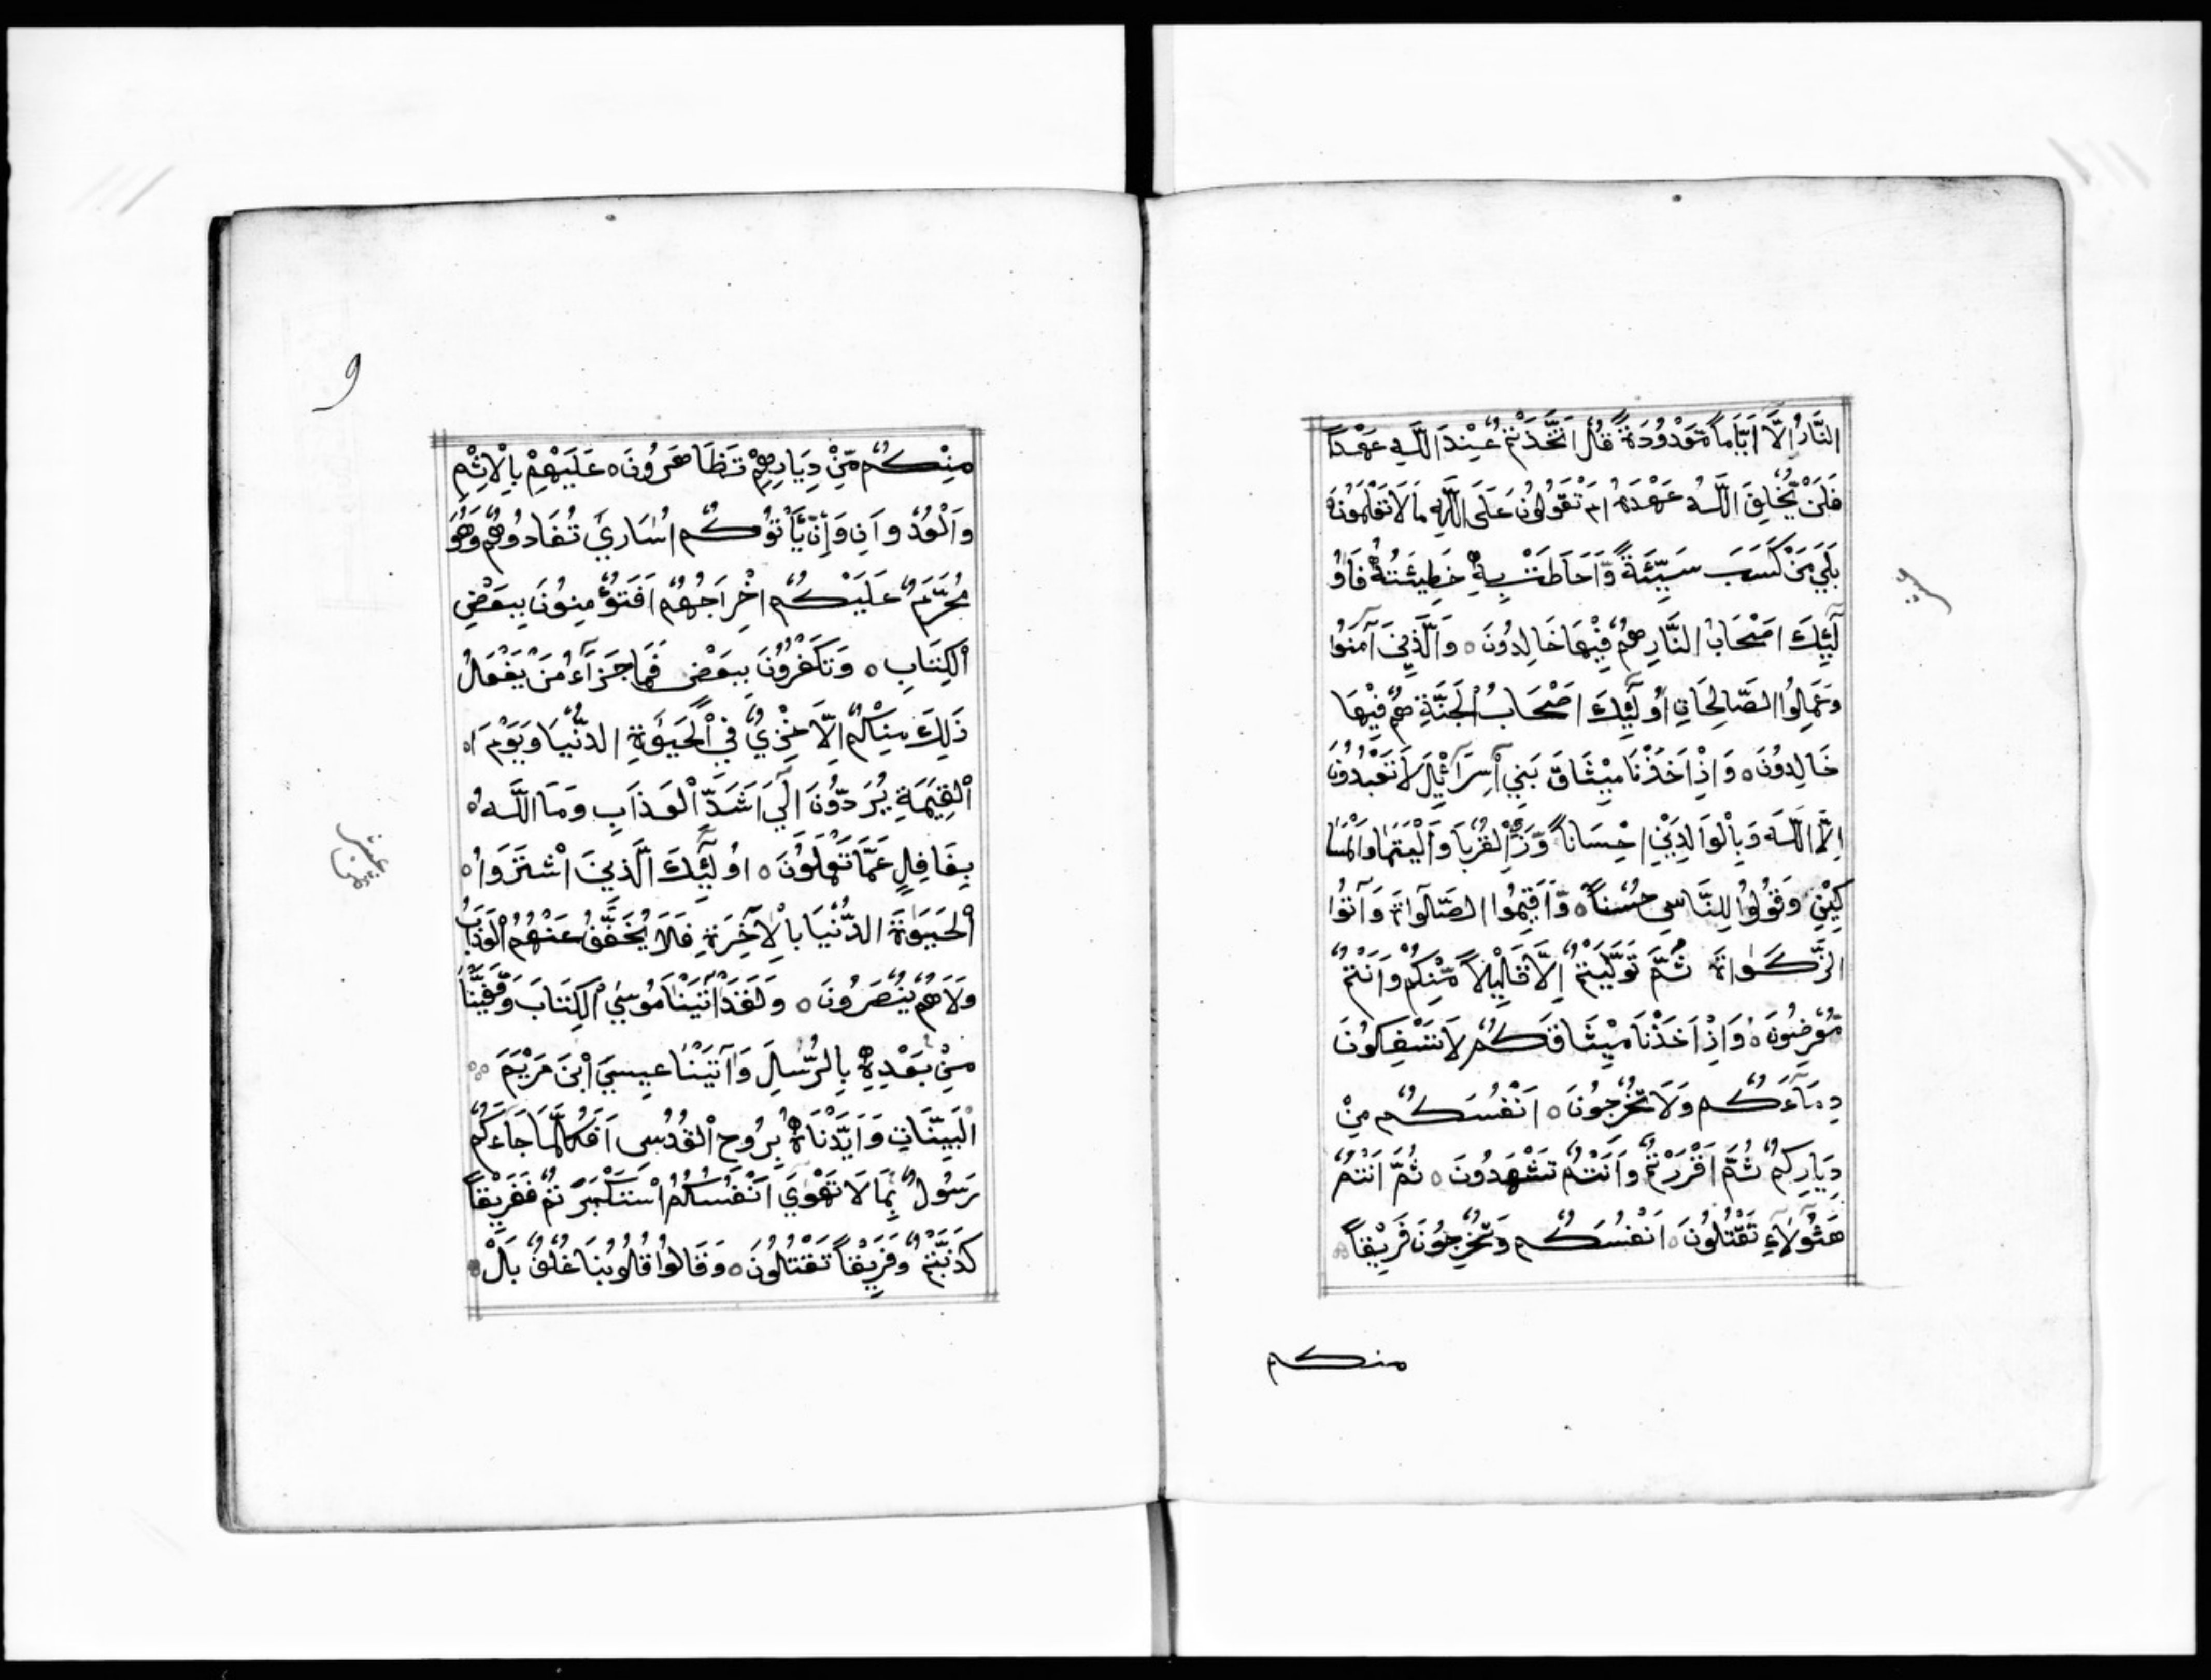 النَّارُ اِلَّا اَيَّاماً مَّعْدُودَةً قُلْ اَتَّخَذْتُمْ عِنْدَ اللَّهِ عَهْداً
فَلَنْ يُّخْلِفَ اللَّهُ عَهْدَهُ اَمْ تَقُولُونَ عَلَى اللَّهِ مَا لَا تَعْلَمُونَ
بَلَي مَنْ كَسَبَ سَيِّئَةً وَّاَحَاطَتْ بِهِ خَطِيئَتُهُ فَاُو
لَٓئِكَ اَصْحَابُ النَّارِ هُمْ فِيْهَا خَالِدُونَ ه وَالَّذِينَ آمَنُوا
وَعَمِلُوا الصَّالِحَاتِ اُولَٓئِكَ اَصْحَابُ الْجَنَّةِ هُمْ فِيْهَا
خَالِدُونَ ه وَاِذْ اَخَذْنَا مِيْثَاقَ بَنِي اِسْرَآئِيلَ لَا تَعْبُدُونَ
اِلَّا اللَّهَ وَبِالْوَالِدَيْنِ اِحْسَاناً وَّذِي الْقُرْبَا وَالْيَتَمَا وَالْمَسَا
كِيْنِ وَقُولُوا لِلنَّاسِ حُسْناً ه وَّاَقِيمُوا الصَّلَوٰاةَ وَآتُوا
الزَّكَوٰاةَ ثُمَّ تَوَلَّيْتُمْ اِلَّا قَلِيْلاً مِّنْكُمْ وَاَنْتُمْ
مُّعْرِضُونَ ه وَاِذْ اَخَذْنَا مِيْثَاقَكُمْ لَا تَسْفِكُونَ
دِمَآءَكُمْ وَلَا تُخْرِجُونَ ه اَنْفُسَكُمْ مِنْ
دِيَارِكُمْ ثُمَّ اَقْرَرْتُمْ وَاَنْتُمْ تَشْهَدُونَ ه ثُمَّ اَنْتُمْ
هَٓئُولَآءِ تَقْتُلُونَ ه اَنْفُسَكُمْ وَتُخْرِجُونَ فَرِيْقاً
منكم
و
مِنْكُمْ مِّنْ دِيَارِهِمْ تَظَاهَرُونَ ه عَلَيْهِمْ بِالْاِثْمِ
وَالْعُدْوَانِ وَاِنْ يَّأْتُوكُمْ اُسَارَيٰ تُفَادُوهُمْ وَهُوَ
مُحَرَّمٌ عَلَيْكُمْ اِخْرَاجُهُمْ اَفَتُؤْمِنُونَ بِبَعْضِ
الْكِتَابِ ه وَتَكْفُرُونَ بِبَعْضٍ فَمَا جَزَآءُ مَنْ يَفْعَلُ
ذَلِكَ مِنْكُمْ اِلَّا خِزْيٌ فِي الْحَيَوٰةِ الدُّنْيَا وَيَوْمَ ا
الْقِيَمَةِ يُرَدُّونَ اِلَي اَشَدِّ الْعَذَابِ وَمَا اللَّهُ
بِغَافِلٍ عَمَّا تَعْمَلُونَ ه اُولَٓئِكَ الَّذِينَ اشْتَرَوُا ه
الْحَيَوٰةَ الدُّنْيَا بِالْاٰخِرَةِ فَلَا يُخَفَّفُ عَنْهُمُ الْعَذَابُ
وَلَا هُمْ يُنْصَرُونَ ه وَلَقَدْ آتَيْنَا مُوسَي الْكِتَابَ وَقَفَّيْنَا
مِنْ بَعْدِهِ بِالرُّسُلِ وَآتَيْنَا عِيسَي ابْنَ مَرْيَمَ
الْبَيِّنَاتِ وَاَيَّدْنَاهُ بِرُوحِ الْقُدُسِ اَفَكُلَّمَا جَاءَكُمْ
رَسُولٌ بِمَا لَا تَهْوَي اَنْفُسُكُمُ اسْتَكْبَرْتُمْ فَفَرِيْقاً
كَذَّبْتُمْ وَفَرِيْقاً تَقْتُلُونَ ه وَقَالُوا قُلُوبُنَا غُلْفٌ بَلْ